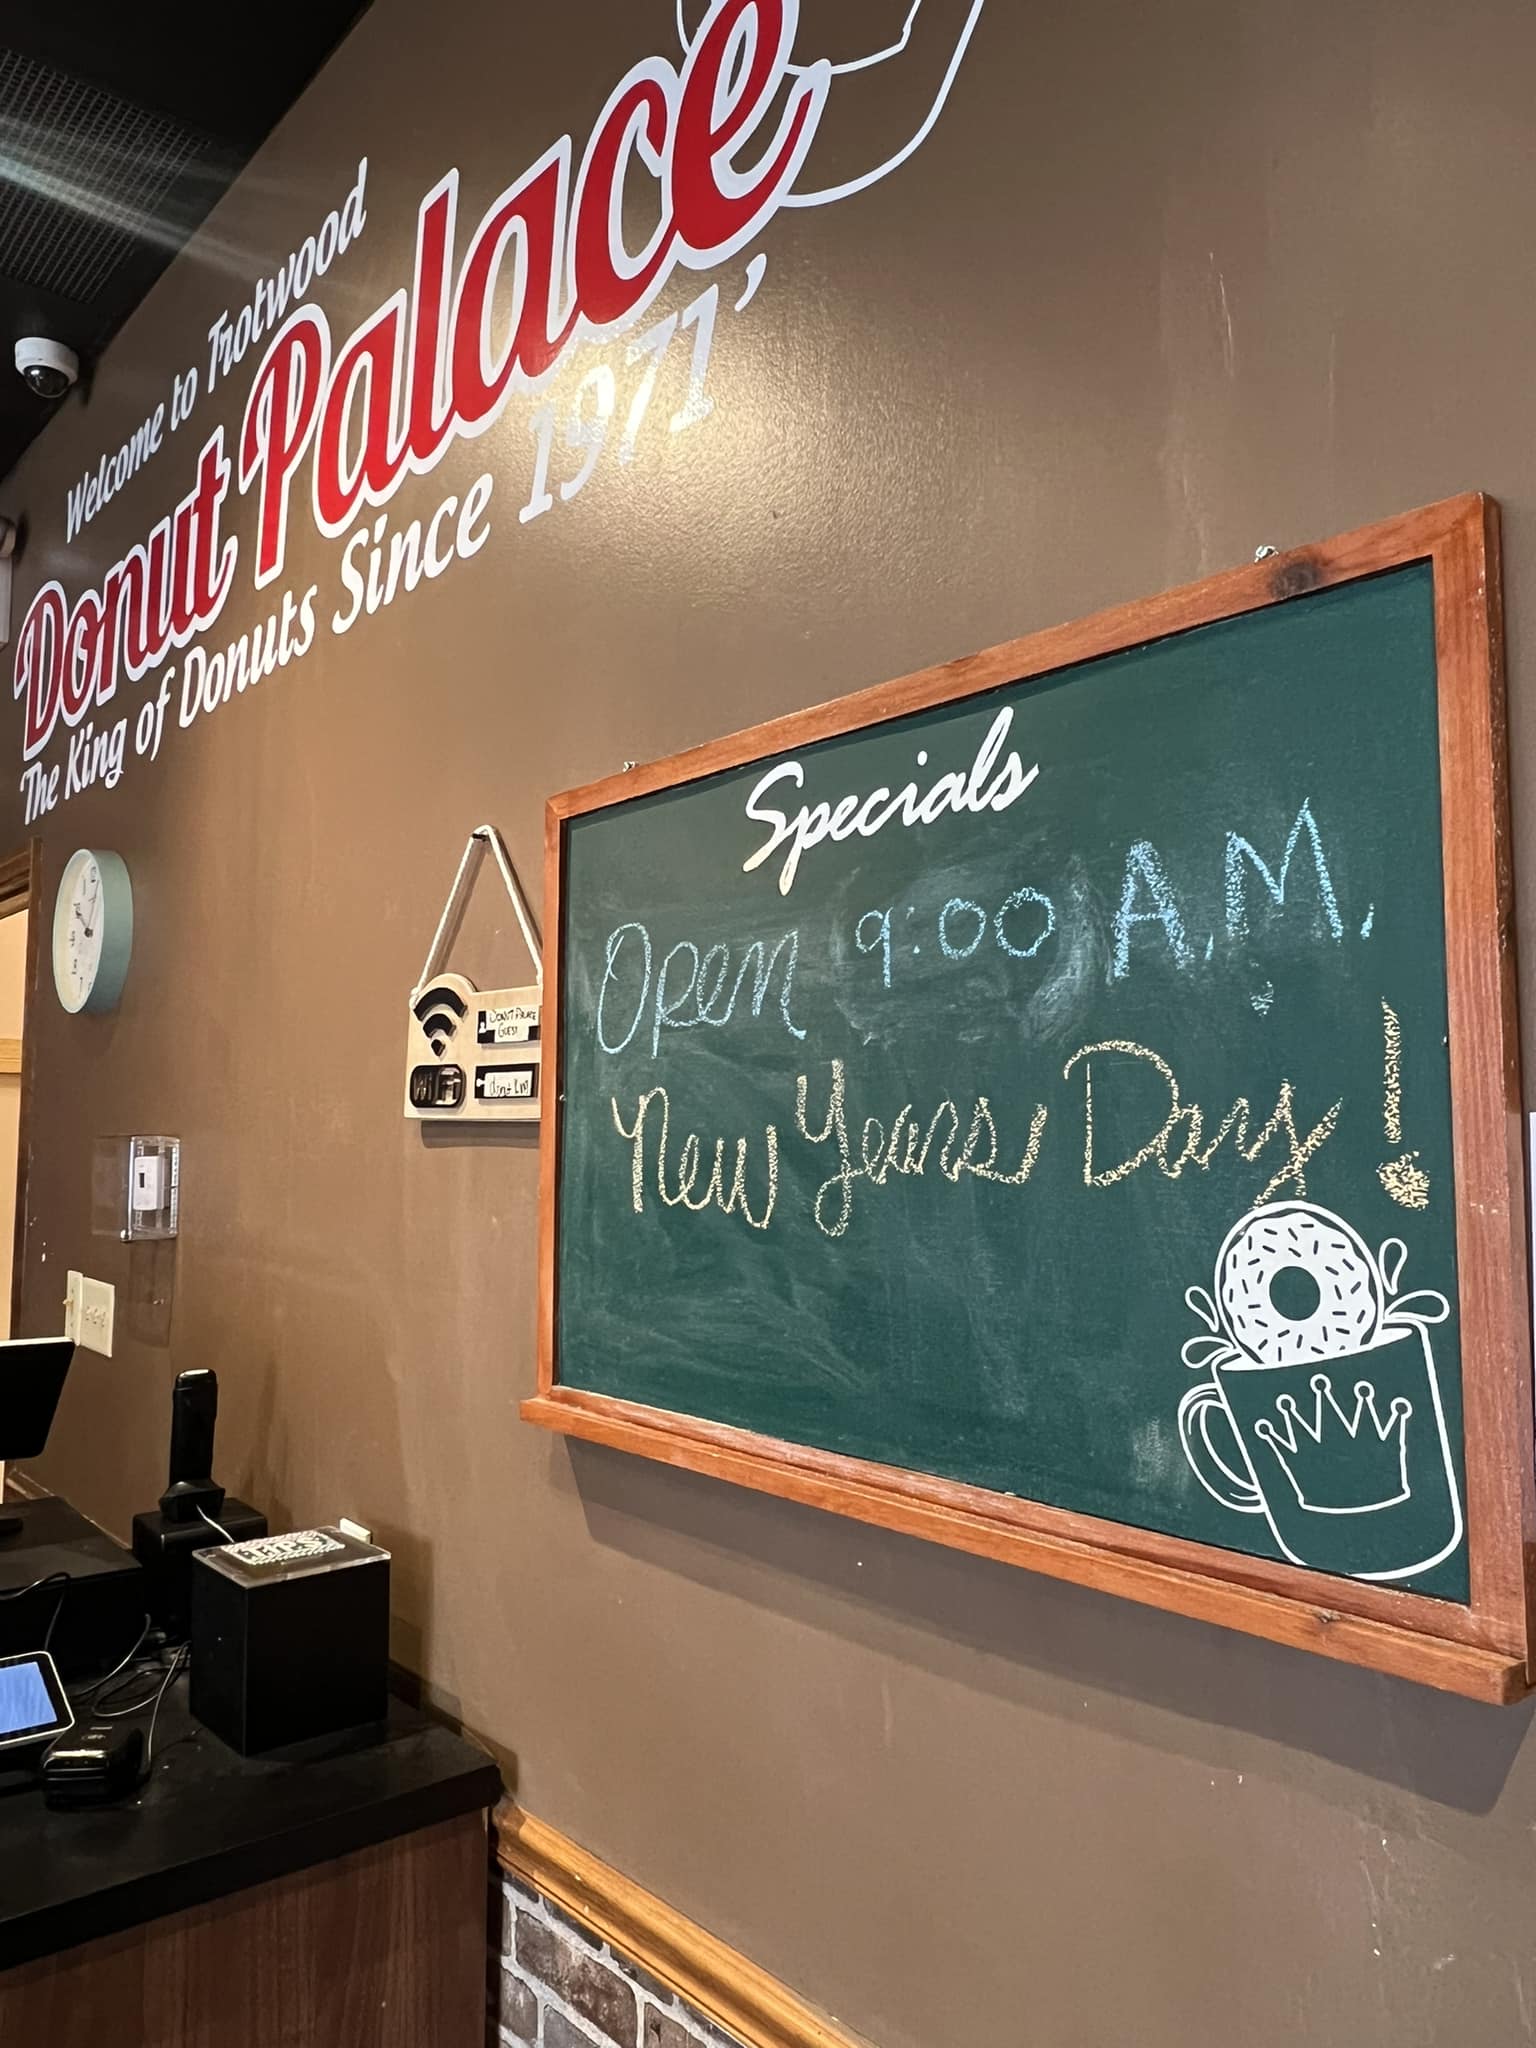 Welcome to Trotwood
Donut Palace
'The King of Donuts Since 1971'
Specials
Open 9:00 A.M.
New Years Day!
DONUT PALACE
GUEST
WiFi
TIPS